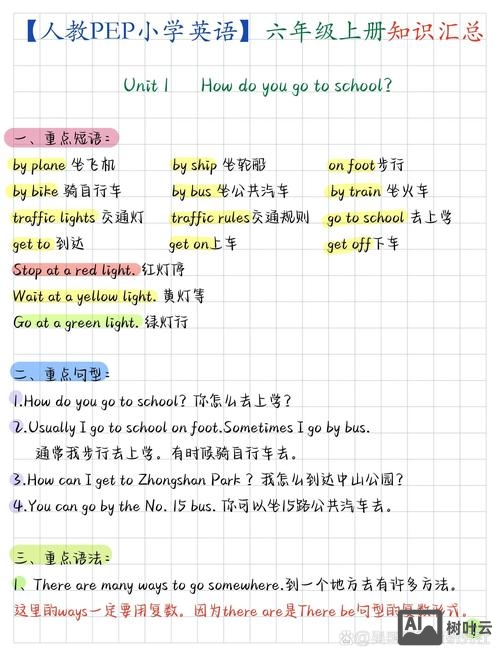 【人教PEP小学英语】六年级上册知识汇总
Unit 1 How do you go to school?
一、重点短语:
by plane 坐飞机 by ship 坐轮船 on foot步行
by bike 骑自行车 by bus 坐公共汽车 by train 坐火车
traffic lights 交通灯 traffic rules交通规则 go to school 去上学
get to 到达 get on上车 get off下车
Stop at a red light. 红灯停
Wait at a yellow light. 黄灯等
Go at a green light. 绿灯行
二、重点句型:
1.How do you go to school? 你怎么去上学?
2.Usually I go to school on foot.Sometimes I go by bus.
通常我步行去上学。有时候骑自行车去。
3.How can I get to Zhongshan Park ? 我怎么到达中山公园?
4.You can go by the No. 15 bus. 你可以坐15路公共汽车去。
三、重点语法:
1、There are many ways to go somewhere.到一个地方去有许多方法。
这里的ways一定要用复数。因为there are是There be句型的复数形式。
AI 树叶云